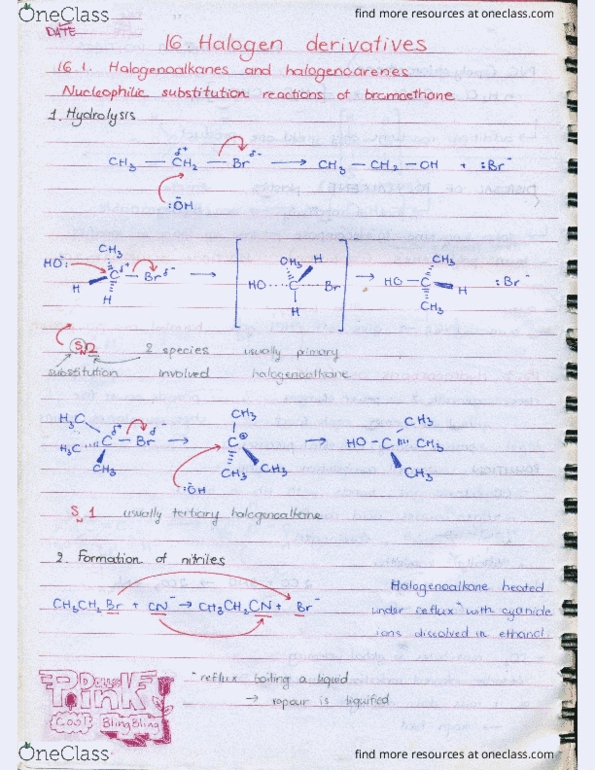 OneClass
find more resources at oneclass.com
DATE
16 Halogen derivatives
16.1. Halogenoalkanes and halogenoarenes
Nucleophilic substitution reactions of bromoethane
1. Hydrolysis
CH₃ — CH₂ — Br → CH₃ — CH₂ — OH + :Br⁻
δ+ δ-
:ŌH
CH₃ CH₃ H CH₃
HO: C δ+ Br δ- → HO C Br → HO — C H :Br⁻
H H H CH₃
SN2 2 species usually primary
substitution involved halogenoalkane
H₃C CH₃ CH₃
H₃C C δ+ Br δ- → C⊕ → HO — C CH₃
CH₃ CH₃ CH₃ CH₃
:ŌH
SN1 usually tertiary halogenoalkane
2. Formation of nitriles
CH₃CH₂Br + CN⁻ → CH₃CH₂CN + Br⁻
Halogenoalkane heated
under reflux* with cyanide
ions dissolved in ethanol.
* reflux boiling a liquid
→ vapour is liquified
Pink
Cool BlingBling
OneClass
find more resources at oneclass.com